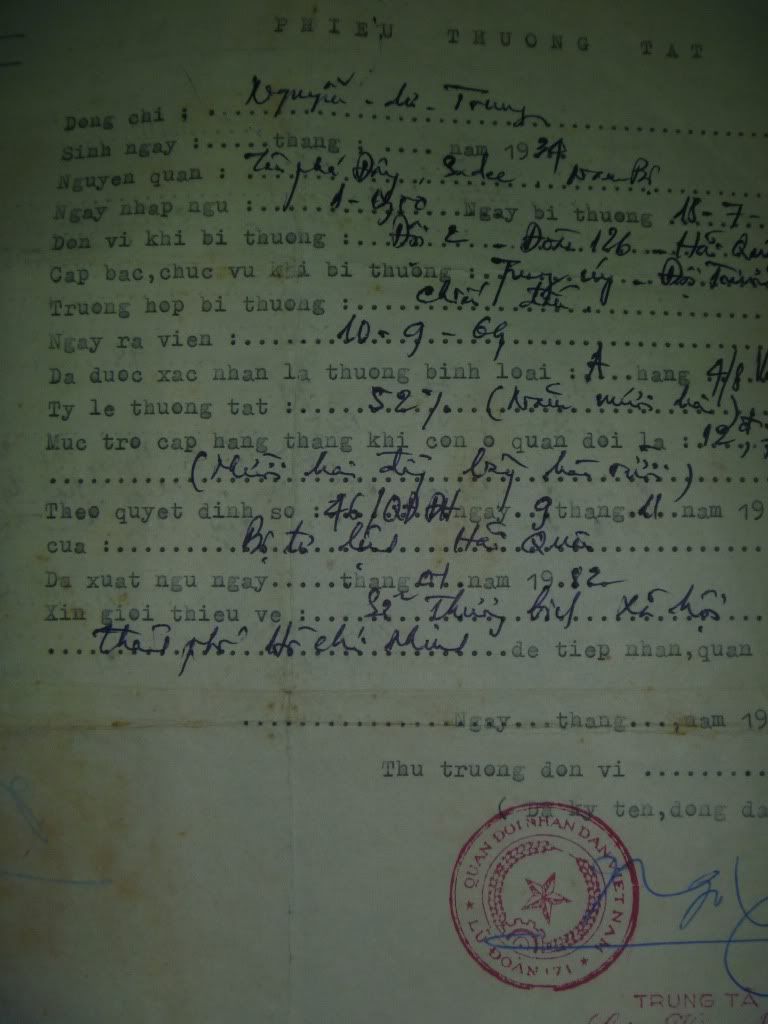 PHIEU THUONG TAT
Dong chi : Nguyễn - - Trung
Sinh ngay :......thang :..... nam 1934
Nguyen quan : Tân phú Đông, Sadec Nam Bộ
Ngay nhap ngu : 1-1950 Ngay bi thuong 18-7-
Don vi khi bi thuong : Đội 2 - Đoàn 126 - Hải Quân
Cap bac,chuc vu khi bi thuong : Trung úy - Đội
Truong hop bi thuong : chiến đấu
Ngay ra vien : 10-9-69
Da duoc xac nhan la thuong binh loai : A hang 4/8
Ty le thuong tat : 52% (Năm mươi hai)
Muc tro cap hang thang khi con o quan doi la : 12đ,
(Mười hai đồng bảy hào rưỡi)
Theo quyet dinh so : 46/QĐ ngay 9 thang 11 nam 19
cua : Bộ tư lệnh Hải Quân
Da xuat ngu ngay......thang 01 nam 1982
Xin gioi thieu ve : Sở Thương binh Xã hội
thành phố Hồ chí Minh de tiep nhan,quan
Ngay...thang...,nam 19
Thu truong don vi
( Da ky ten,dong da
QUAN DOI NHAN DAN VIET NAM
LU DOAN 171
TRUNG TA